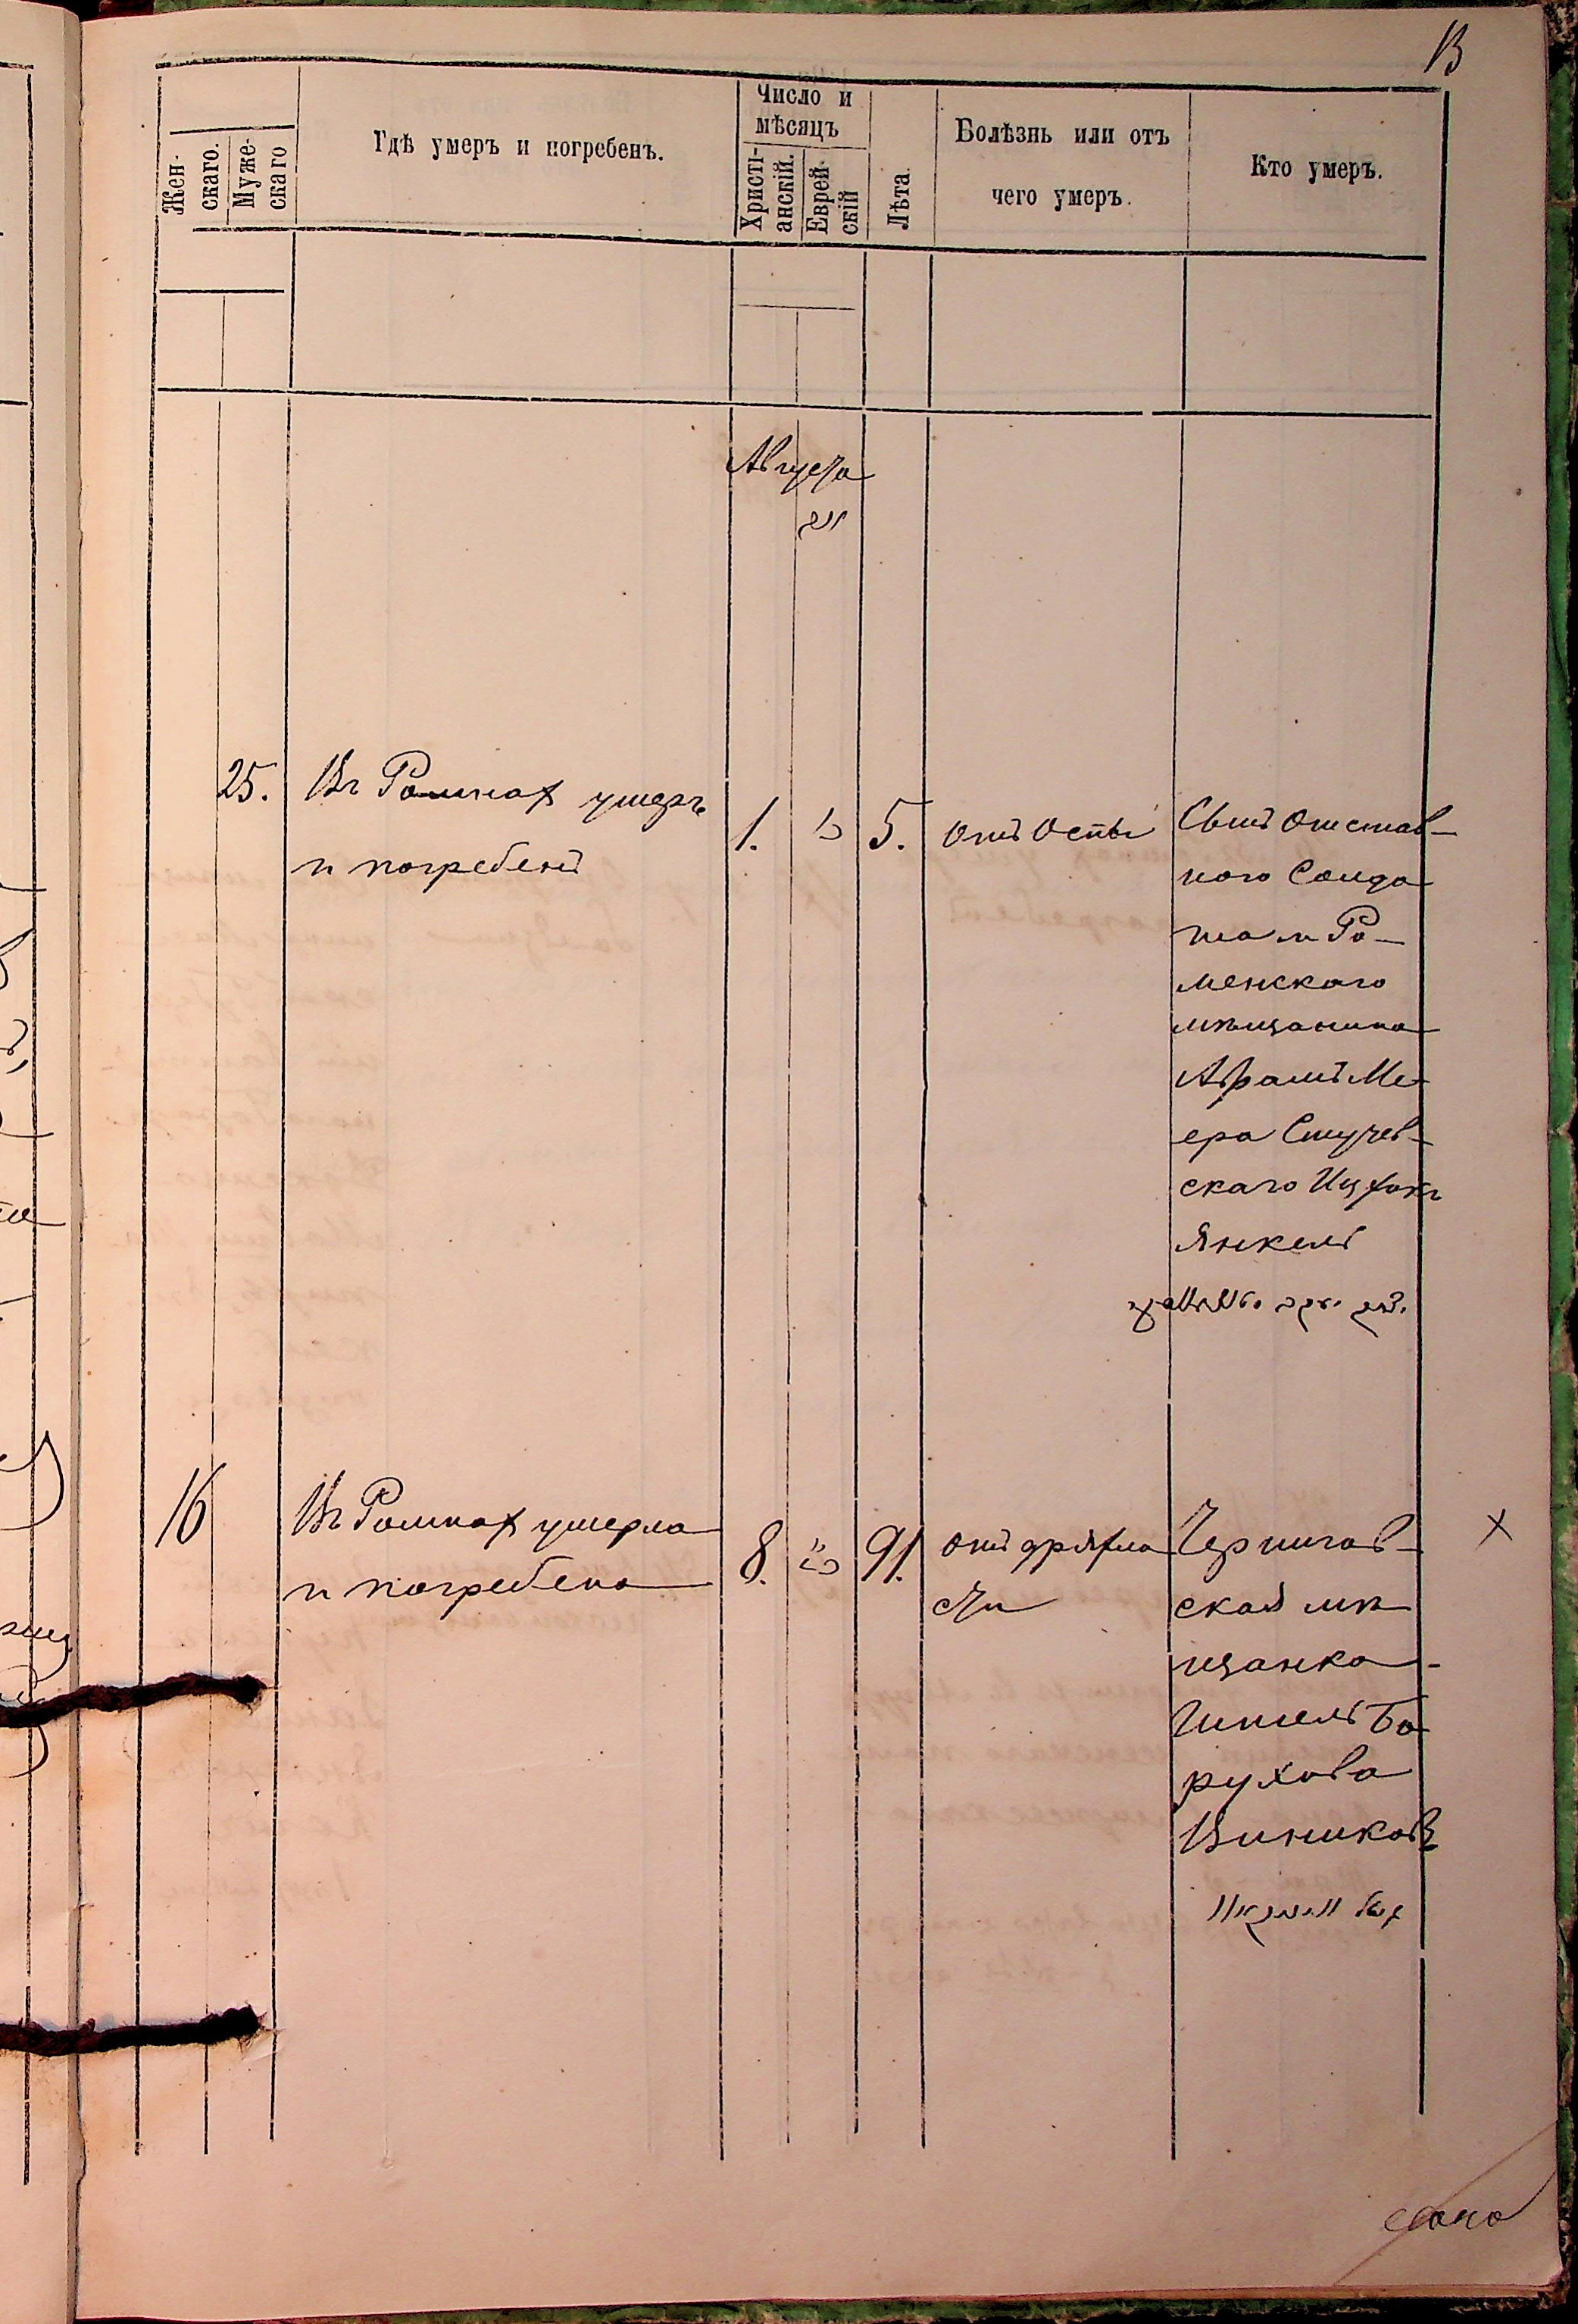 13
Жен-
скаго.
Муже-
скаго
Гдѣ умеръ и погребенъ.
Число и
мѣсяцъ
Христі-
анскій.
Еврей-
скій
Лѣта
Болѣзнь или отъ
чего умеръ.
Кто умеръ.
Августа
25.
Въ Ромнах умеръ
и погребенъ
1.
5.
отъ Оспы
Сынъ Отстав-
ного Солда-
та и Ро-
менскаго
мѣщанина
Абрамъ Ме-
ера
скаго Ицхокъ
Янкель
16
Въ Ромнах умерла
и погребена
8.
91.
отъ дряхло
сти
Чернигов-
ская мѣ
щанка
Ба
рухова